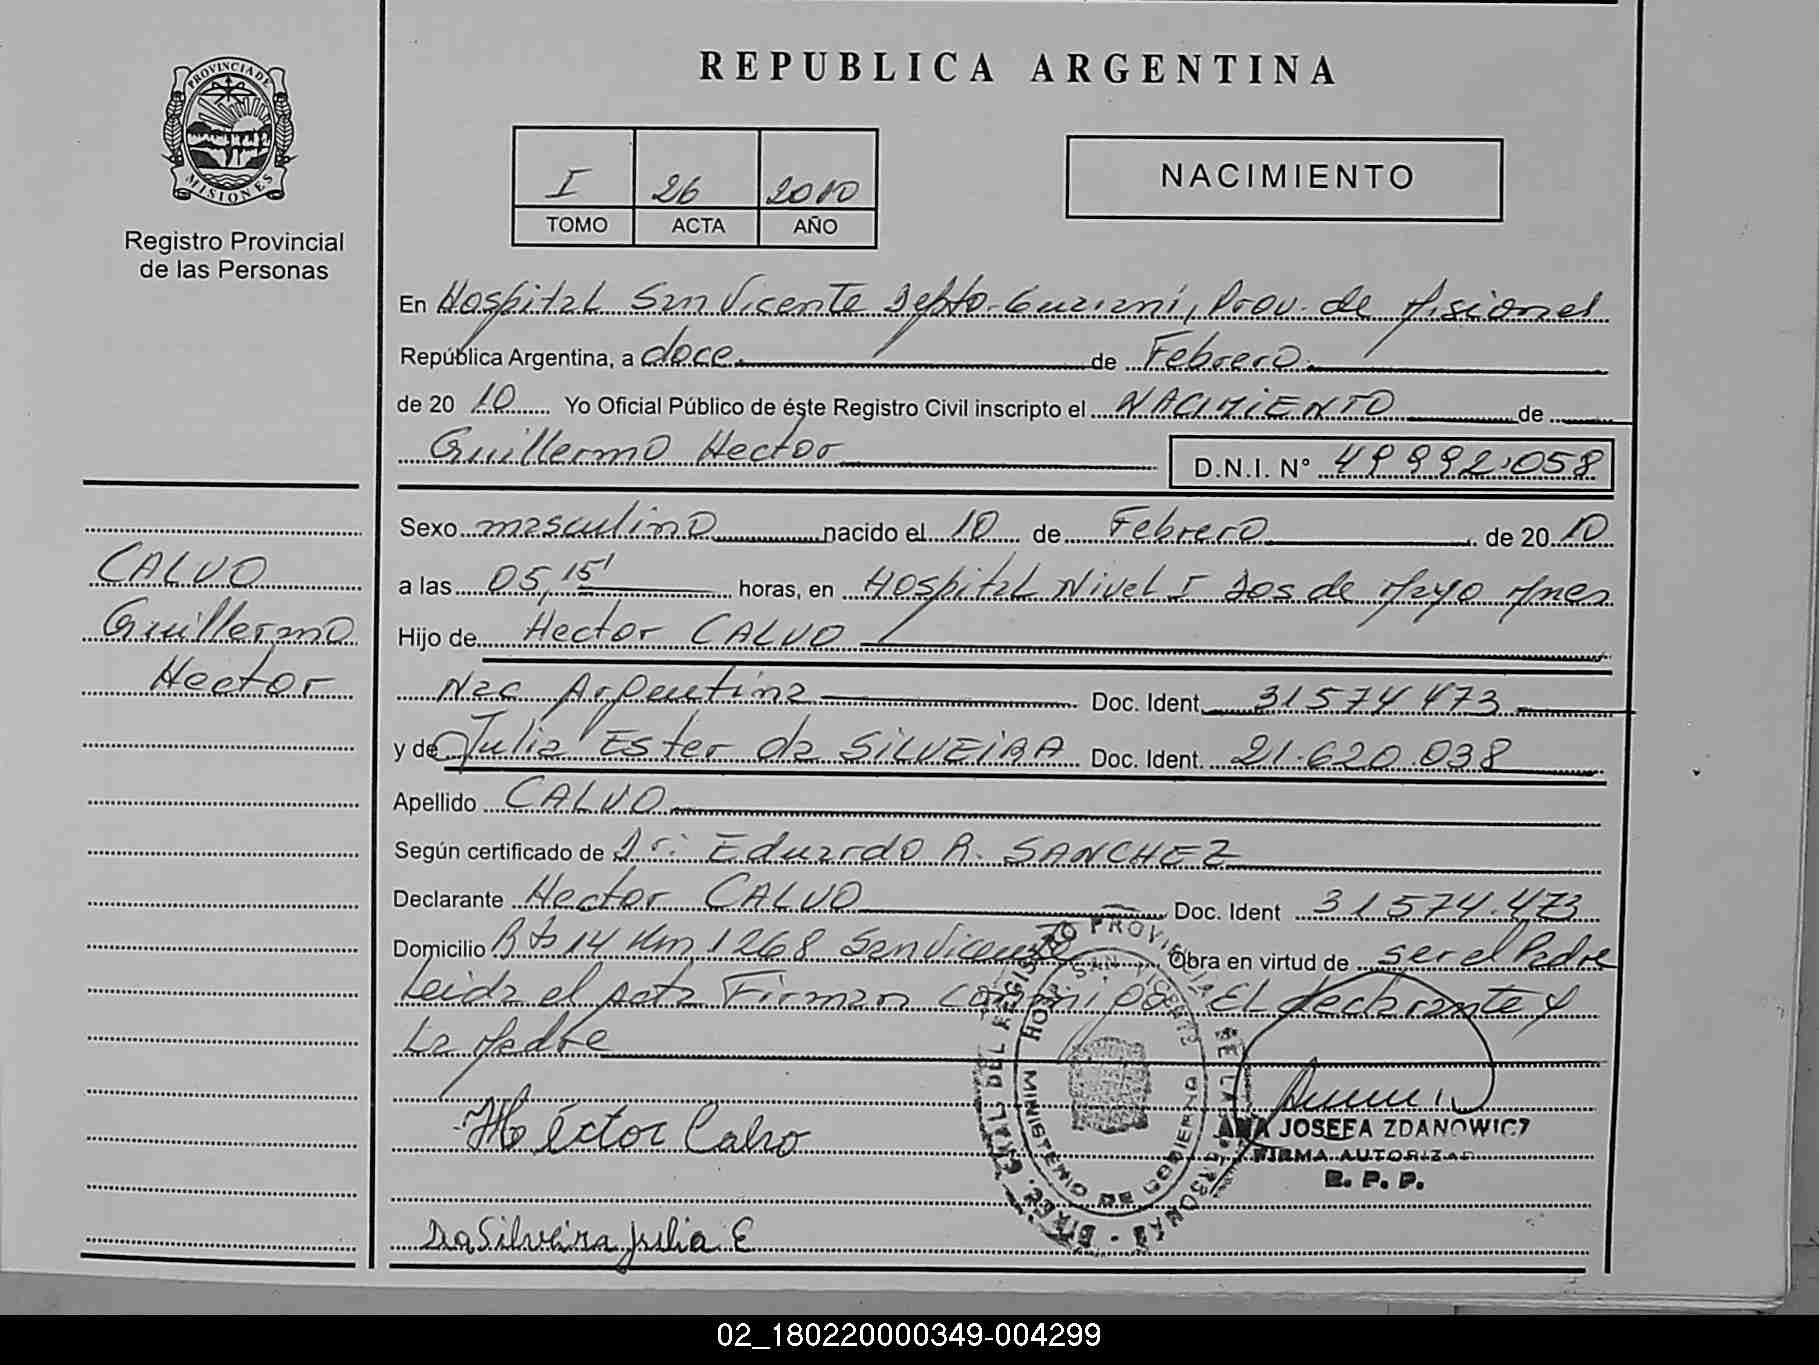 REPUBLICA ARGENTINA
PROVINCIA DE
MISIONES
Registro Provincial
de las Personas
I 26 2010
TOMO ACTA AÑO
NACIMIENTO
En Hospital San Vicente Depto. Guaraní, Prov. de Misiones
República Argentina, a doce de Febrero
de 20 10 Yo Oficial Público de éste Registro Civil inscripto el NACIMIENTO de
Guillermo Hector D.N.I. N° 49992.058
Sexo masculino nacido el 10 de Febrero de 20 10
a las 05,15' horas, en Hospital Nivel I Dos de Mayo Mnes
Hijo de Hector CALVO
Nac Argentina Doc. Ident. 31574473
y de Julia Ester da SILVEIRA Doc. Ident. 21.620.038
Apellido CALVO
Según certificado de Dr: Eduardo R. SANCHEZ
Declarante Hector CALVO Doc. Ident 31574.473
Domicilio Rta 14 Km 1268 San Vicente Obra en virtud de ser el Padre
Leida el acta Firman conmigo EL declarante y
La Madre
Héctor Calvo
DaSilveira Julia E
CALVO
Guillermo
Hector
DIREC. GRAL. DEL REGISTRO PROVINCIAL DE LAS PERSONAS
HOSP. SAN VICENTE
MINISTERIO DE GOBIERNO
ANA JOSEFA ZDANOWICZ
FIRMA AUTORIZAD
R. P. P.
02_180220000349-004299